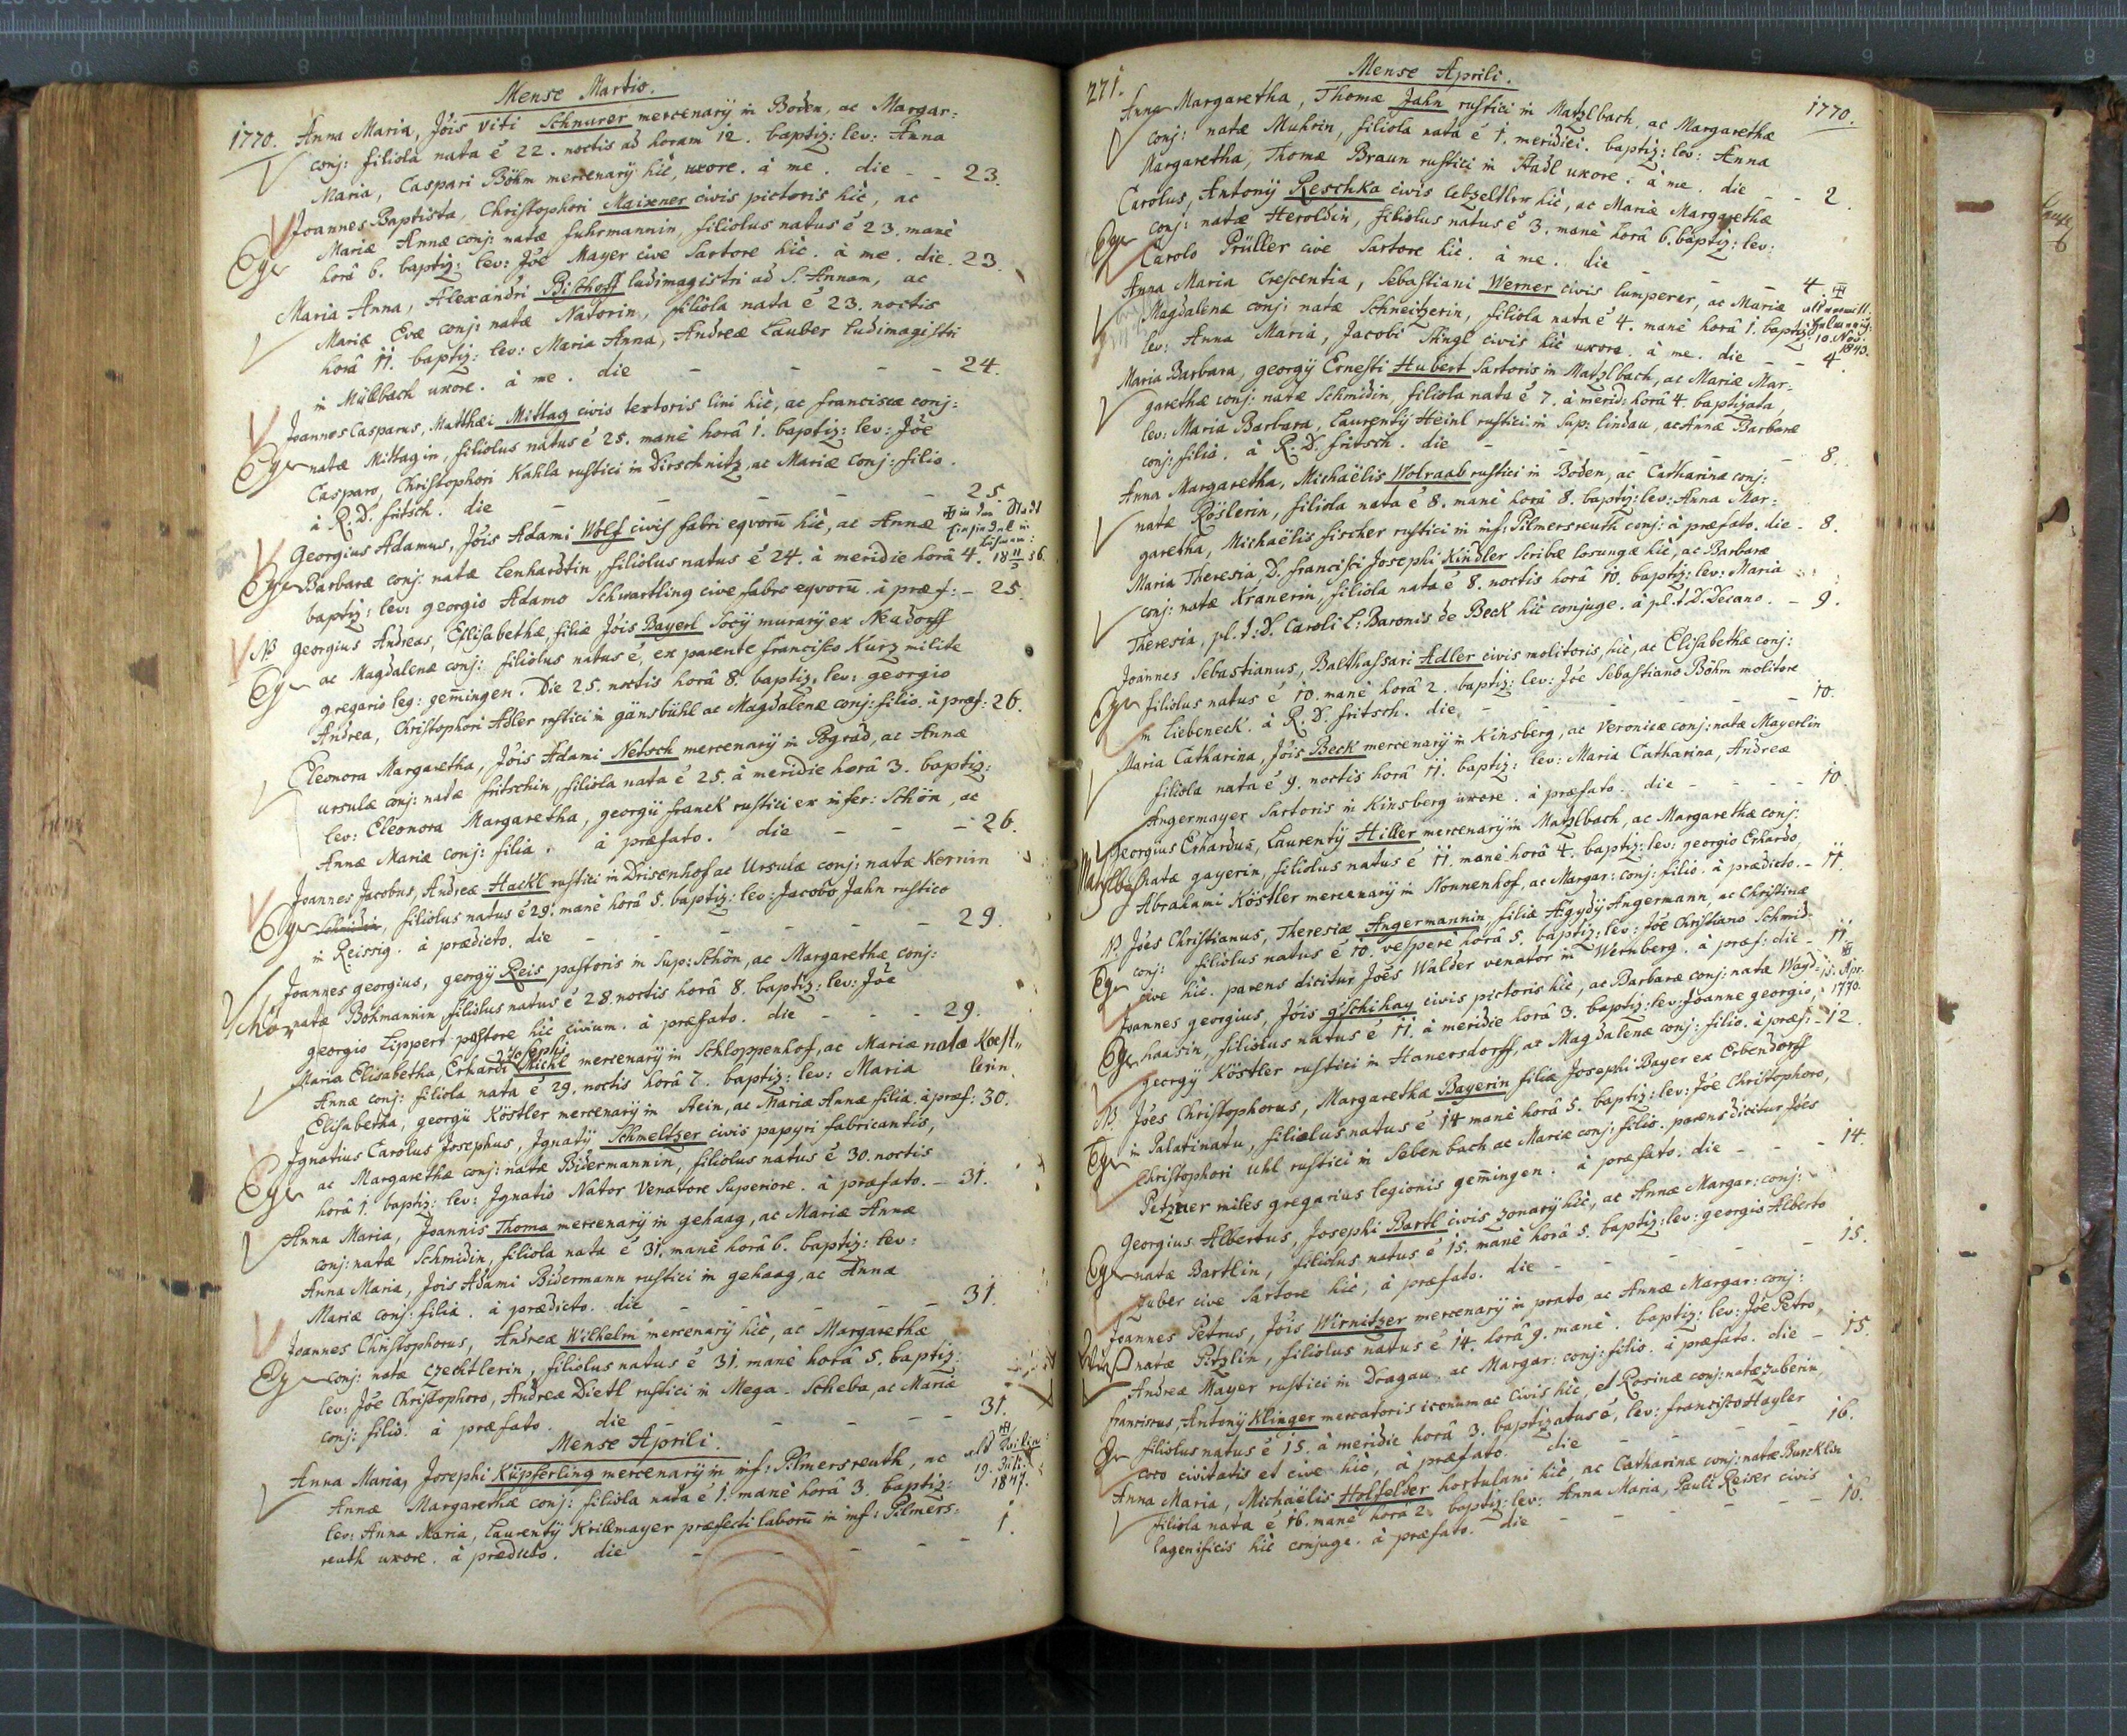 Mense Martio.
1770. Anna Maria, Jois Viti Schnurer mercenarÿ in Boden, ac Margar:
conj: filiola nata ē 22. noctis ad horam 12. baptiz: lev: Anna
Maria, Caspari Böhm mercenarÿ hic, uxore. à me. die - - 23.
Joannes Baptista, Christophori Maixner civis pictoris hîc, ac
Mariæ Annæ conj: natæ fuhrmannin, filiolus natus ē 23. manè
Eger horâ 6. baptiz: lev: Jōe Mayer cive Sartore hic. à me. die. 23.
Maria Anna, Alexandri Bischoff ludimagistri ad S. Annam, ac
Mariæ Evæ conj: natæ Natorin, filiola nata ē 23. noctis
horâ 11. baptiz: lev: Maria Anna, Andreæ Lauber ludimagistri
in Müllbach uxore. à me. die - - - - 24.
Joannes Casparus, Matthæi Mittag civis textoris lini hic, ac franciscæ conj:
Eger natæ Mittagin, filiolus natus ē 25. manè horâ 1. baptiz: lev: Jōe
Casparo, Christophori Kahla rustici in Dirschnitz, ac Mariæ conj: filio.
à R. D. fritsch. die - - - - 25.
Georgius Adamus, Jōis Adami Wolf civis fabri eqvorū hic, ac Annæ
Eger Barbaræ conj: natæ Lenhardtin, filiolus natus ē 24. à meridie horâ 4.
baptiz: lev: georgio Adamo Schwartling cive fabro eqvorū. à præf: - 25.
NB georgius Andreas, Elisabethæ, filiæ Jōis Bayerl Socÿ murarÿ ex Neüdorff
Eger ac Magdalenæ conj: filiolus natus ē, ex parente francisco Kurz milite
gregario leg: gem̄ingen. Die 25. noctis horâ 8. baptiz. lev: georgio
Andrea, Christophori Adler rustici in gänsbühl ac Magdalenæ conj: filio. à præf: 26.
Eleonora Margaretha, Jōis Adami Netsch mercenarÿ in Pograd, ac Annæ
ursulæ conj: natæ fritschin, filiola nata ē 25. à meridie horâ 3. baptiz:
lev: Eleonora Margaretha, georgÿ franck rustici ex infer: Schön, ac
Annæ Mariæ conj: filia. à præfato. die - - - 26.
Joannes Jacobus, Andreæ Hackl rustici in Drisenhof ac Ursulæ conj: natæ Kernin
Eger Schmidin, filiolus natus ē 29. manè horâ 5. baptiz: lev: Jacobo Jahn rustico
in Reissig. à prædicto. die - - - - 29.
Joannes georgius, georgÿ Reis pastoris in Sup: Schön, ac Margarethæ conj:
Schön natæ Böhmannin, filiolus natus ē 28. noctis horâ 8. baptiz: lev: Jōe
georgio Lippert pastore hic civium. à præfato. die - - - 29.
Josephi
Maria Elisabetha, Erhardi Michl mercenarÿ in Schloppenhof, ac Mariæ natæ Koest„
Annæ conj: filiola nata ē 29. noctis horâ 7. baptiz: lev: Maria lerin.
Elisabetha, georgii Köstler mercenarÿ in Stein, ac Mariæ Annæ filia. à præf: 30.
Ignatius Carolus Josephus, Ignatÿ Schmeltzer civis papyri fabricantis,
Eger ac Margarethæ conj: natæ Bidermannin, filiolus natus ē 30. noctis
horâ 1. baptiz: lev: Ignatio Nator Venatore Superiore. à præfato. - 31.
Anna Maria, Joannis Thoma mercenarÿ in gehaag, ac Mariæ Annæ
conj: natæ Schmidin, filiola nata ē 31. manè horâ 6. baptiz: lev:
Anna Maria, Jōis Adami Bidermann rustici in gehaag, ac Annæ
Mariæ conj: filiâ. à prædicto. die - - - - 31.
Joannes Christophorus, Andreæ Wilhelm mercenarÿ hic, ac Margarethæ
Eger conj: natæ Czechtlerin, filiolus natus ē 31. manè horâ 5. baptiz:
lev: Jōe Christophoro, Andreæ Dietl rustici in Mega-Scheba, ac Mariæ
conj: filio. à præfato. die - - - - 31.
Mense Aprili.
Anna Maria, Josephi Küpferling mercenarÿ in inf: Pilmersreuth, ac
Annæ Margarethæ conj: filiola nata ē 1. manè horâ 3. baptiz:
lev: Anna Maria, Laurentÿ Krillmayer præfecti laborū in inf: Pilmers-
reuth uxore. à prædicto. die - - - - 1.
271. Mense Aprili. 1770.
Anna Margaretha, Thomæ Jahn rustici in Matzlbach, ac Margarethæ
conj: natæ Muhrin, filiola nata ē 1. meridiei. baptiz: lev: Anna
Margaretha, Thomæ Braun rustici in Stadl uxore. à me. die - - 2.
Carolus, Antonÿ Reschka civis lebzeltler hic, ac Mariæ Margarethæ
Eger conj: natæ Heroldin, filiolus natus ē 3. manè horâ 6. baptiz: lev:
Carolo Prüller cive Sartore hic. à me. die - - - 4.
Anna Maria Crescentia, Sebastiani Werner civis lumperer, ac Mariæ
Magdalenæ conj: natæ Schneitzerin, filiola nata ē 4. manè horâ 1. baptiz: 10. Nov:
lev: Anna Maria, Jacobi Stingl civis hic uxore. à me. die - - 4. 1843.
Maria Barbara, georgÿ Ernesti Hubert Sartoris in Matzlbach, ac Mariæ Mar-
garethæ conj: natæ Schmidin, filiola nata ē 7. à merid: horâ 4. baptizata,
lev: Maria Barbara, Laurentÿ Heinl rustici in Sup: lindau, ac Annæ Barbaræ
conj: filiâ. à R. D. fritsch. die - - - - 8.
Anna Margaretha, Michaëlis Wolraab rustici in Boden, ac Catharinæ conj:
natæ Röslerin, filiola nata ē 8. manè horâ 8. baptiz: lev: Anna Mar-
garetha, Michaëlis fischer rustici in inf: Pilmersreuth conj: à præfato. die - 8.
Maria Theresia, D. francisci Josephi Kindler Scribæ losungæ hic, ac Barbaræ
conj: natæ Kranerin, filiola nata ē 8. noctis horâ 10. baptiz: lev: Maria
Theresia, pl. t: D. Caroli L: Baronis de Beck hic conjuge. à pl. t. D. Decano. - 9.
Joannes Sebastianus, Balthassari Adler civis molitoris, hic, ac Elisabethæ conj:
Eger filiolus natus ē 10. manè horâ 2. baptiz: lev: Jōe Sebastiano Böhm molitore
in liebeneck. à R. D. fritsch. die - - - - 10.
Maria Catharina, Jōis Beck mercenarÿ in Kinsberg, ac Veronicæ conj: natæ Mayerlin
filiola nata ē 9. noctis horâ 11. baptiz: lev: Maria Catharina, Andreæ
Angermayer Sartoris in Kinsberg uxore. à præfato. die - - - 10.
Georgius Erhardus, Laurentÿ Hiller mercenarÿ in Matzlbach, ac Margarethæ conj:
Matzlbach natæ gayerin, filiolus natus ē 11. manè horâ 4. baptiz: lev: georgio Erhardo,
Abrahami Köstler mercenarÿ in Nonnenhof, ac Margar: conj: filio. à prædicto. - 11.
N. Jōes Christianus, Theresiæ Angermannin, filiæ Ægydÿ Angermann, ac Christinæ
Eger conj: filiolus natus ē 10. vesperè horâ 5. baptiz: lev: Jōe Christiano Schmid
cive hic. parens dicitur Jōes Walder venator in Wernberg. à præf: die - 11.
Joannes georgius, Jōis gschihay civis pictoris hic, ac Barbaræ conj: natæ Wayd- 15. Apr.
Eger haasin, filiolus natus ē 11. à meridie horâ 3. baptiz: lev: Joanne georgio, 1770.
georgÿ Köstler rustici in Hanersdorff, ac Magdalenæ conj: filio. à præf: - 12.
N. Jōes Christophorus, Margarethæ Bayerin filiæ Josephi Bayer ex Erbendorff
Eger in Palatinatu, filiolus natus ē 14 manè horâ 5. baptiz: lev: Jōe Christophoro,
Christophori Uhl rustici in Sebenbach ac Mariæ conj: filio. parens dicitur Jōes
Petzner miles gregarius legionis gem̄ingen. à præfato. die - - - 14.
Georgius Albertus, Josephi Bartl civis zonarÿ hic, ac Annæ Margar: conj:
Eger natæ Bartlin, filiolus natus ē 15. manè horâ 5. baptiz: lev: georgio Alberto
Zuber cive Sartore hic, à præfato. die - - - - 15.
Joannes Petrus, Jōis Wirnitzer mercenarÿ in prato ac Annæ Margar: conj:
natæ Pitzlin, filiolus natus ē 14. horâ 9. manè. baptiz: lev: Jōe Petro,
Andreæ Mayer rustici in Dragau, ac Margar: conj: filio. à præfato. die - 15.
franciscus, Antonÿ Klinger mercatoris iconum ac Civis hic, et Rosinæ conj: natæ Zuberin,
Eger filiolus natus ē 15. à meridie horâ 3. baptizatus ē, lev: francisco Hayler
coco civitatis et cive hic, à præfato. die - - - 16.
Anna Maria, Michaëlis Holfelder hortulani hic, ac Catharinæ conj: natæ Burcklin
filiola nata ē 16. manè horâ 2. baptiz: lev: Anna Maria, Pauli Reiser civis
lagenificis hic conjuge. à præfato. die - - - - 16.